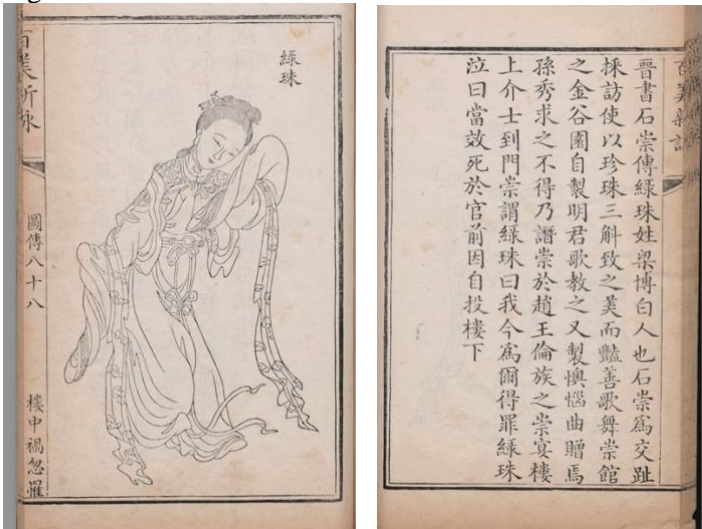 緑珠
百美新詠
圖傳八十八
樓中禍忽罹
晉書石崇傳緑珠姓梁博白人也石崇爲交趾
採訪使以珍珠三斛致之美而豔善歌舞崇館
之金谷園自製明君歌教之又製懊惱曲贈焉
孫秀求之不得乃譖崇於趙王倫族之崇宴樓
上介士到門崇謂緑珠曰我今爲爾得罪緑珠
泣曰當效死於官前因自投樓下